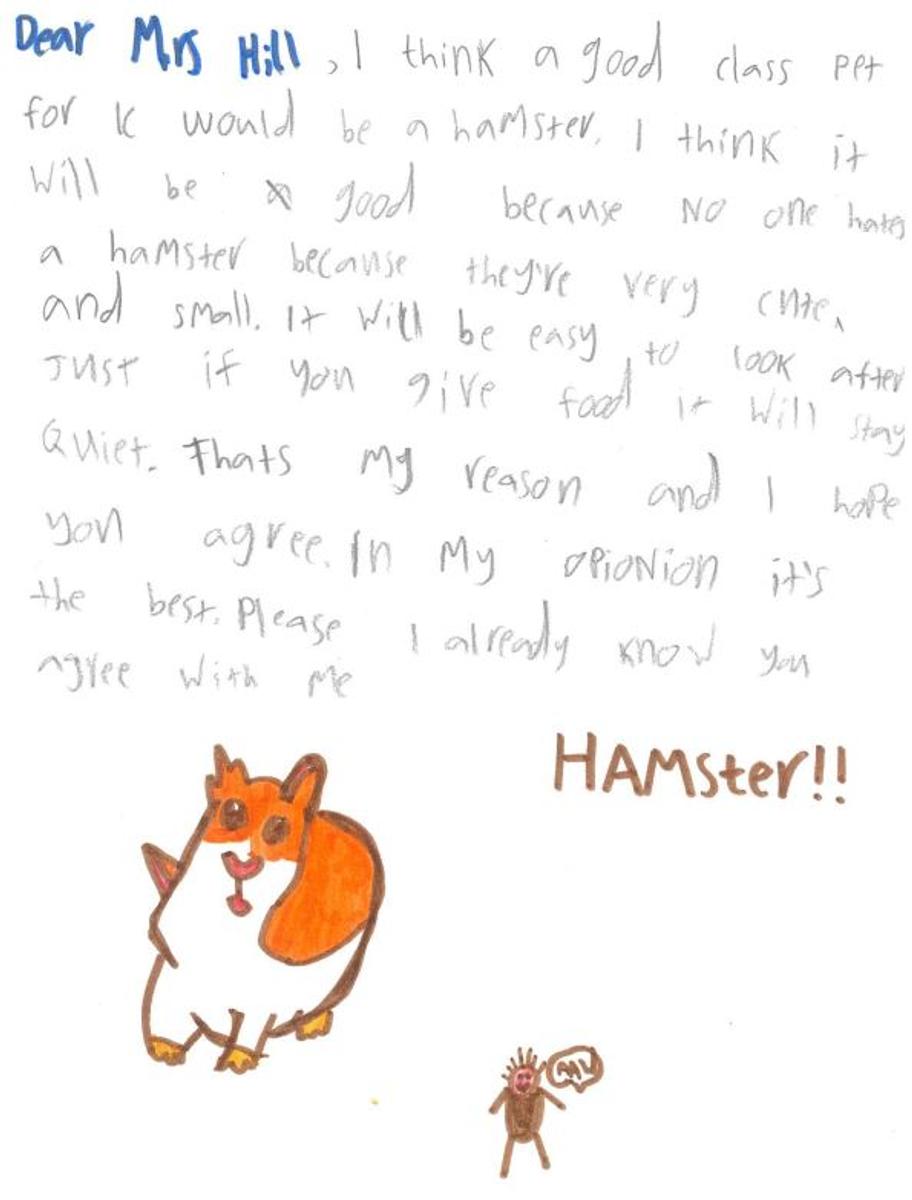 Dear Mrs Hill, I think a good class pet
for K would be a hamster. I think it
will be good because no one hates
a hamster because they're very cute,
and small. It will be easy to look after
Just if you give food it will stay
Quiet. Thats my reason and I hope
you agree. In my opionion it's
the best. Please I already know you
agree with me
HAMster!!
AAW